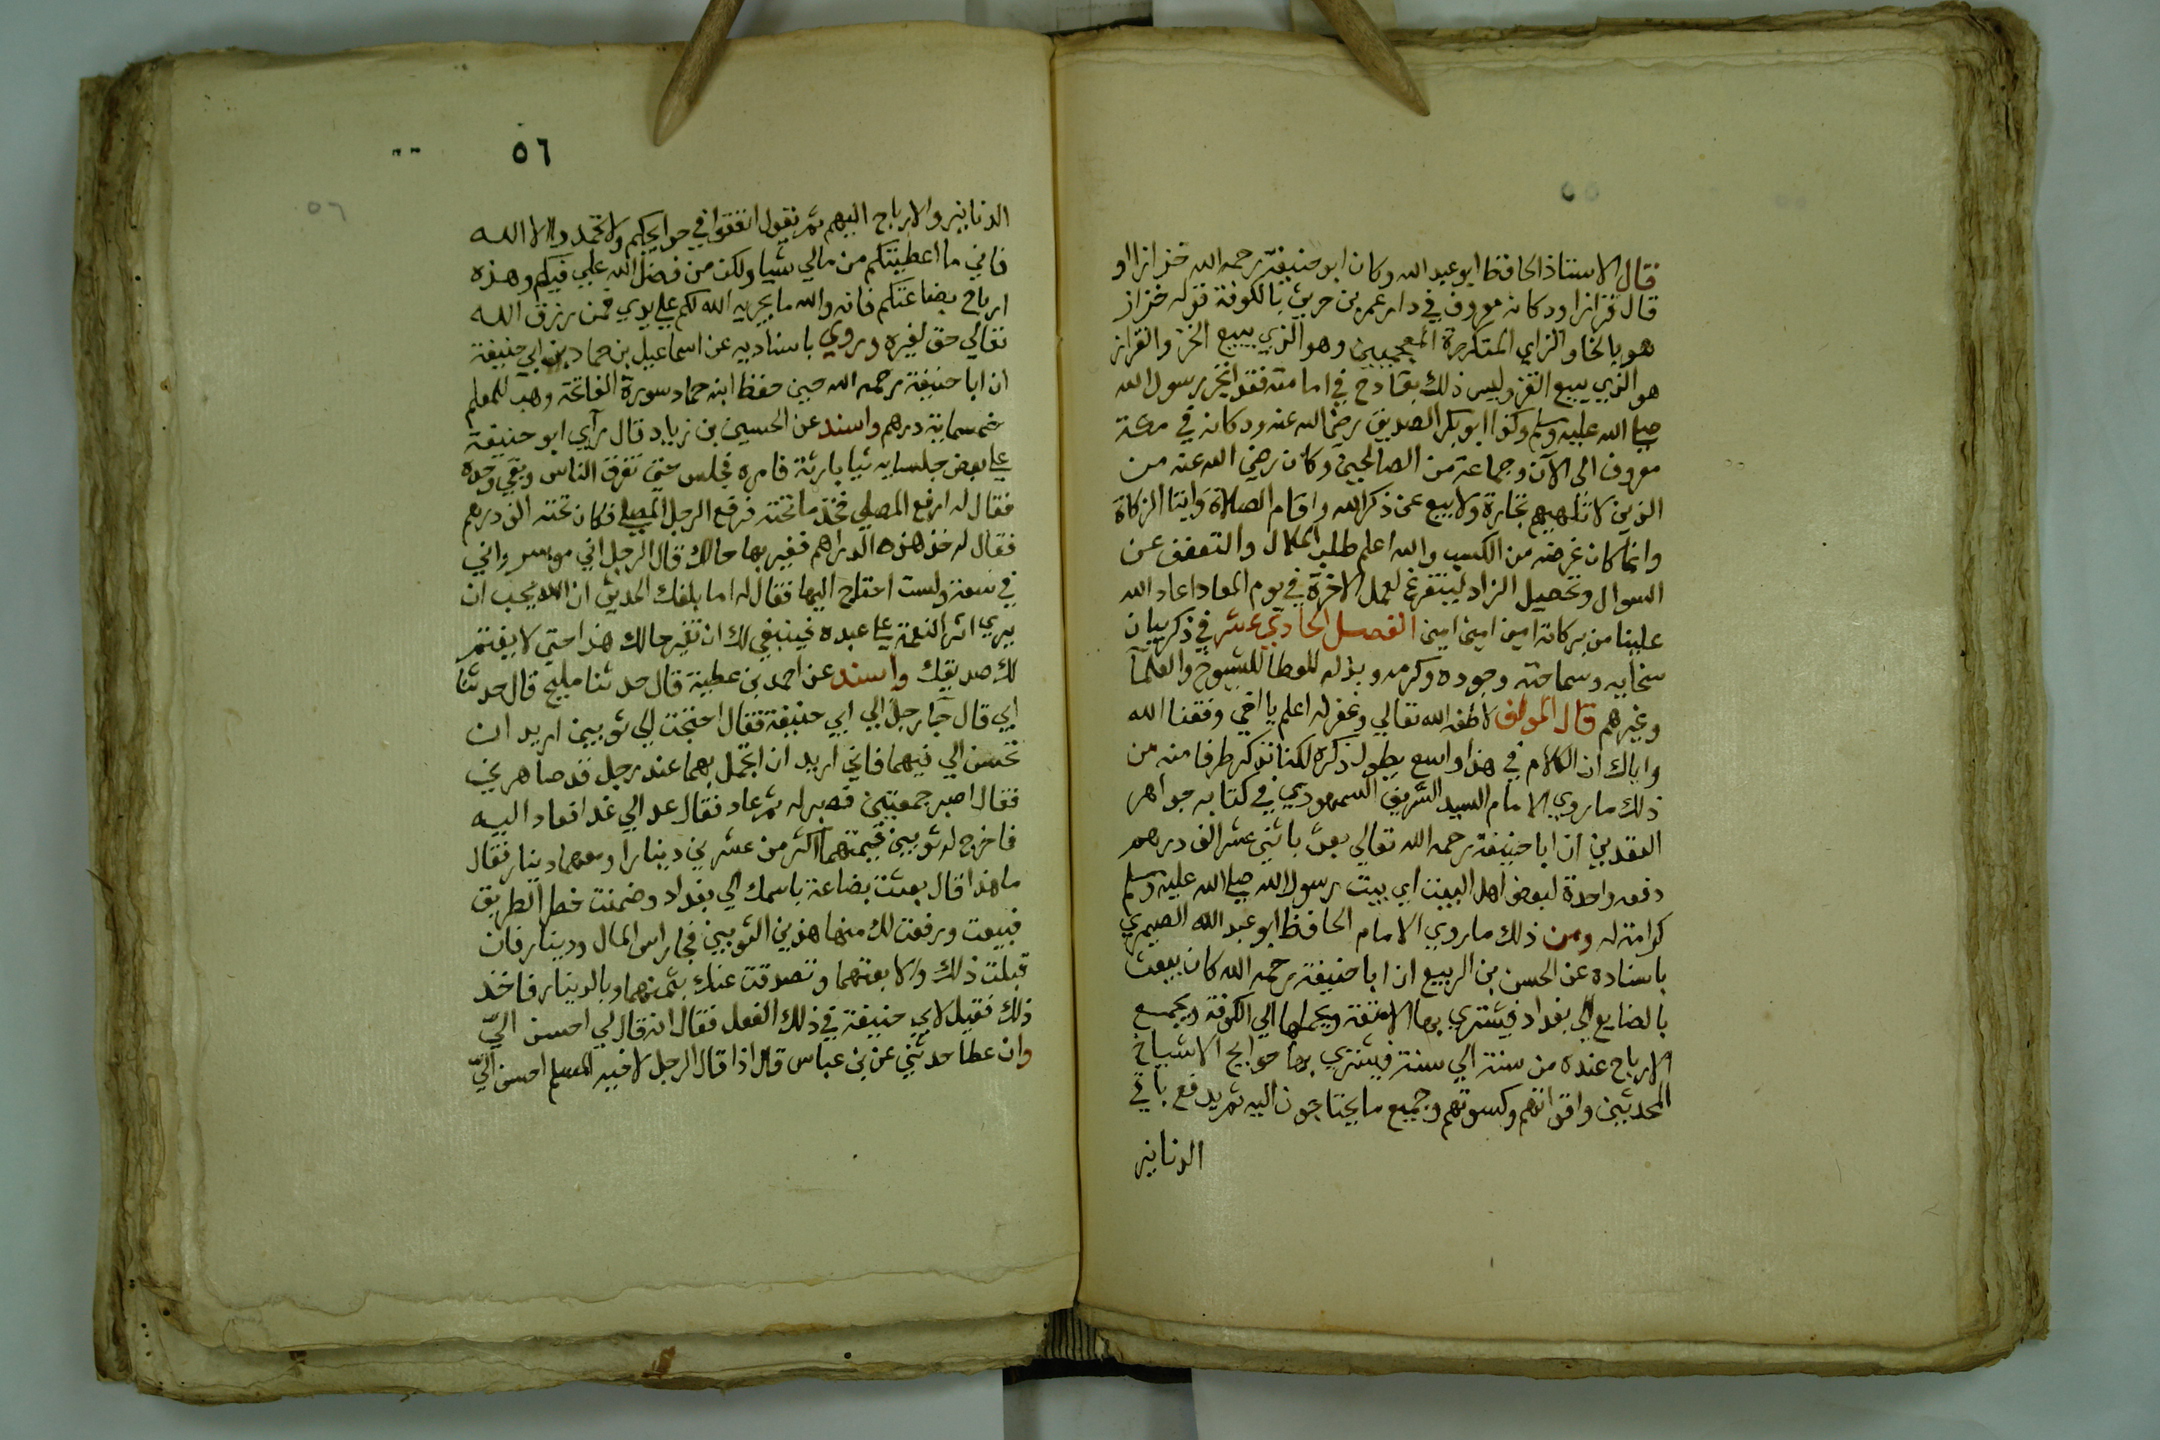 قال الاستاذ الحافظ ابو عبد الله وكان ابو حنيفة رحمه الله خزازا او
قال قزازا ودكانه معروف في دار عمر بن حريث بالكوفة قوله خزاز
هو بالخا والزاي المتكررة المعجمتين وهو الذي يبيع الخز والقزاز
هو الذي يبيع القز وليس ذلك بقادح في امامته فقد اتجر رسول الله
صلى الله عليه وسلم وكذا ابو بكر الصديق رضي الله عنه ودكانه في مكة
معروف الى الآن وجماعة من الصالحين وكان رضي الله عنه من
الذين لا تلهيهم تجارة ولا بيع عن ذكر الله واقام الصلاة وايتا الزكاة
وانما كان غرضه من الكسب والله اعلم طلب الحلال والتعفف عن
السوال وتحصيل الزاد ليتفرغ لعمل الاخرة في يوم المعاد اعاد الله
علينا من بركاته امين امين امين الفصل الحادي عشر في ذكر بيان
سخايه وسماحته وجوده وكرمه وبذله للعطا للشيوخ والعلما
وغيرهم قال المولف لاطفه الله تعالى وغفر له اعلم يا اخي وفقنا الله
واياك ان الكلام في هذا واسع يطول ذكره لكنا نذكر طرفا منه من
ذلك ما روي الامام السيد الشريف السمهودي في كتابه جواهر
العقدين ان ابا حنيفة رحمه الله تعالى بعث باثني عشر الف درهم
دفعه واحدة لبعض اهل البيت اي بيت رسول الله صلى الله عليه وسلم
كرامة له ومن ذلك ما روي الامام الحافظ ابو عبد الله الصيمري
باسناده عن الحسن بن الربيع ان ابا حنيفة رحمه الله كان يبعث
بالضايع الى بغداد فيشتري بها الامتعة ويحملها الي الكوفة ويجمع
الارباح عنده من سنة الي سنة فيشتري بها حوايج الاشياخ
المحدثين واقواتهم وكسوتهم وجميع ما يحتاجون اليه ثم يدفع باقي
الدنانير
٥٦
٥٦
الدنانير والارباح اليهم ثم يقول انفقوا في حوايجكم ولا تحمدوا الا الله
فاني ما اعطيتكم من مالي شيا ولكن من فضل الله علي فيكم وهذه
ارباح بضاعتكم فانه والله ما يجريه الله لكم على يدي فمن رزق الله
تعالى حق لغيره وروي باسناديه عن اسماعيل بن حماد بن ابي حنيفة
ان ابا حنيفة رحمه الله حين حفظ ابنه حماد سورة الفاتحة وهب للمعلم
خمسماية درهم واسند عن الحسين بن زياد قال رآي ابو حنيفة
على بعض جلسايه ثيابا رثة فامره فجلس حتى تفرق الناس وبقي وحده
فقال له ارفع المصلي فخذ ما تحته فرفع الرجل المصلى فكان تحته الف درهم
فقال له خذ هذه الدراهم فغير بها حالك قال الرجل اني موسر واني
في سعة ولست احتاج اليها فقال له اما بلغك الحديث ان الله يحب ان
يرى اثر النعمة على عبده فينبغي لك ان تغير حالك هذا حتي لا يغتم
لك صديقك واسند عن احمد بن عطية قال حدثنا مليح قال حدثنا
ابي قال جا رجل الي ابي حنيفة فقال احتجت الي ثوبين اريد ان
تحسن الي فيهما فاني اريد ان اتجمل بهما عند رجل قد صاهرني
فقال اصبر جمعتين فصبر له ثم عاد فقال عد الي غدا فعاد اليه
فاخرج له ثوبين قيمتهما اكثر من عشرين دينارا ومعهما دينار فقال
ما هذا قال بعثت بضاعة باسمك الي بغداد وضمنت خطر الطريق
فبيعت ورفعت لك منها هذين الثوبين فجا راس المال ودينار فان
قبلت ذلك والا بعتهما وتصدقت عنك بثمنهما وبالدينار فاخذ
ذلك فقيل لابي حنيفة في ذلك الفعل فقال انه قال لي احسن اليّ
وان عطا حدثني عن بن عباس قال اذا قال الرجل لاخيه المسلم احسن اليّ